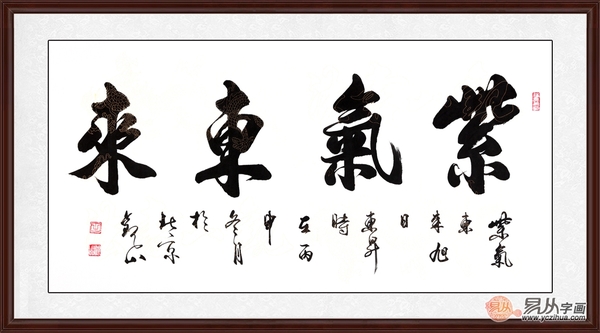 紫氣東來
紫氣
東
來旭
日
東昇
時
在丙
申
冬月
於
北京
易从字画
www.yczihua.com